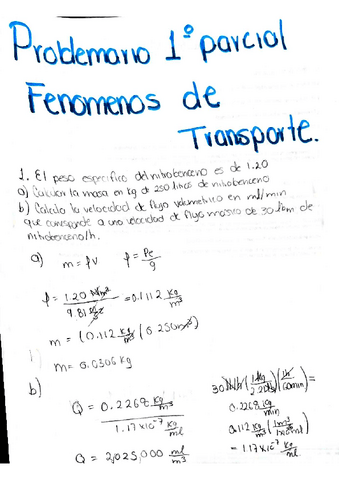 Problemario 1° parcial
Fenomenos de
Transporte.
1. El peso especifico del nitrobenceno es de 1.20
a) Calcular la masa en kg de 250 litros de nitrobenceno
b) Calcula la velocidad de flujo volumetrico en ml/min
que corresponde a una velocidad de flujo masivo de 30 lbm de
nitrobenceno/h.
a) m = ρV ρ = Pe/g
ρ = 1.20 N/m³ / 9.81 = 0.1112 kg/m³
m = (0.112 kg/m³)(0.250m³)
m = 0.0306 kg
b)
Q = 0.2268 kg/m³ / 1.17x10⁻⁷ kg/ml
Q = 2,025,000 ml/m³
30 lb/h (1kg/2.20lb)(1h/60min) =
0.2268 kg/min
0.112 kg/m³ (1m³/1x10⁶ml)
= 1.17x10⁻⁷ kg/ml